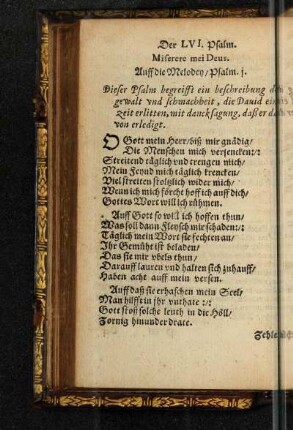 Der LVI. Psalm.
Miserere mei Deus.
Auff die Melodey/ Psalm. j.
Dieser Psalm begreifft ein beschreibung der
gewalt vnd schmachheit, die Dauid ein
Zeit erlitten, mit dancksagung, daß er
von erledigt.
O Gott mein Herr/ biß mir gnädig/
Die Menschen mich versencken:/:
Streitend täglich vnd trengen mich/
Mein Feynd mich täglich krencken/
Viel streiten stoltzlich wider mich/
Wein ich mich förcht hoff ich auff dich/
Gottes Wort will ich rühmen.
Auff Gott so will ich hoffen thun/
Was soll dann Fleysch mir schaden:/:
Täglich mein Wort sie fechten an/
Ihr Gemüht ist beladen/
Das sie mir vbels thun/
Darauff lauren vnd halten sich zuhauff/
Haben acht auff mein versen.
Auff daß sie erhaschen mein Seel/
Man hilfft in jhr vnthate :/:
Gott stoß solche leuth in die Höll/
Zornig hinunder drate.